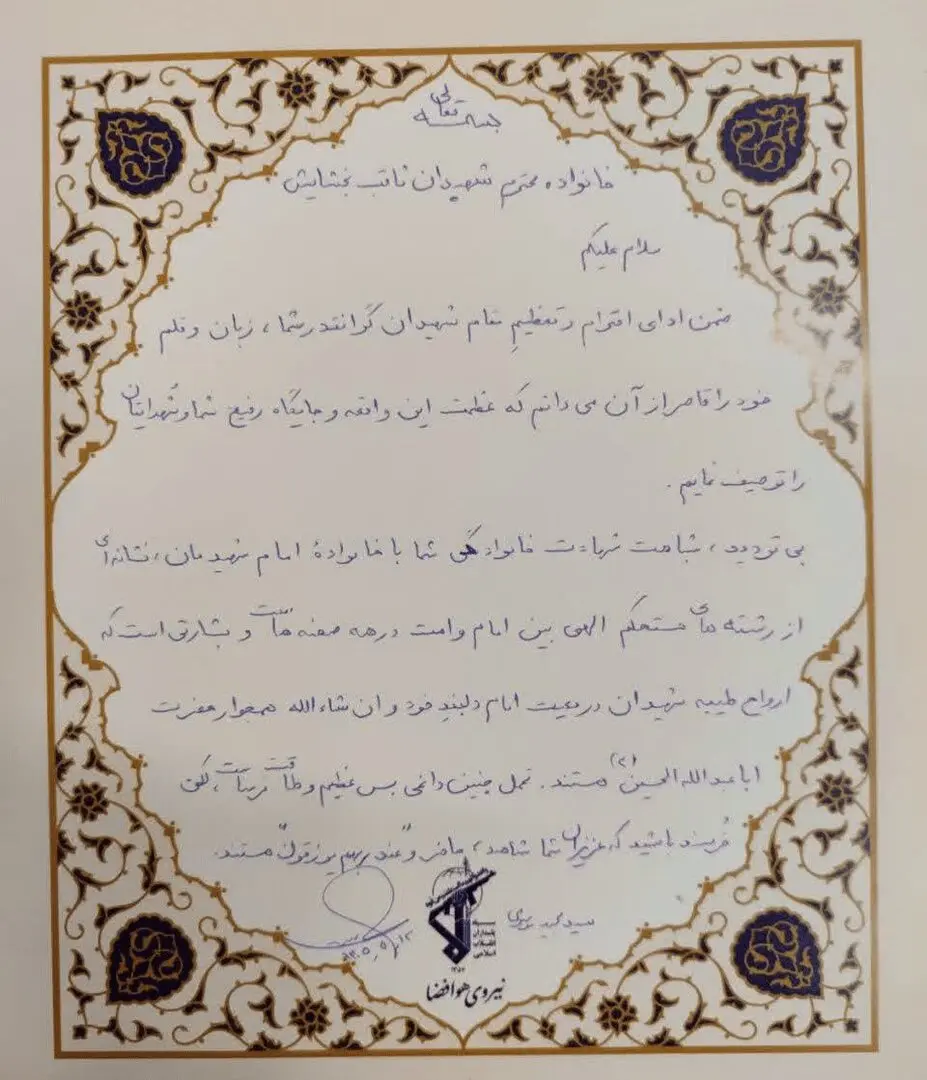 بسمه تعالی
خانواده محترم شهیدان ثاقب بخشایش
سلام علیکم
ضمن ادای احترام و تعظیمِ مقام شهیدان گرانقدر شما، زبان و قلم
خود را قاصر از آن می دانم که عظمت این واقعه و جایگاه رفیع شما و شهدایتان
را توصیف نمایم.
بی تردید، شباهت شهادت خانوادگی شما با خانوادهٔ امام شهیدمان، نشانه ای
از رشته های مستحکم الهی بین امام و امت در همه صحنه هاست و بشارتی است که
ارواح طیبه شهیدان در معیت امام دلبندِ خود و ان شاءالله همجوار حضرت
اباعبدالله الحسین هستند. تحمل چنین داغی بس عظیم و طاقت فرساست، لکن
خُرسند باشید که عزیزان شما شاهد، حاضر و "عند ربهم یرزقون" هستند.
سید مجید موسوی
سپاه
پاسداران
انقلاب
اسلامی
نیروی هوافضا